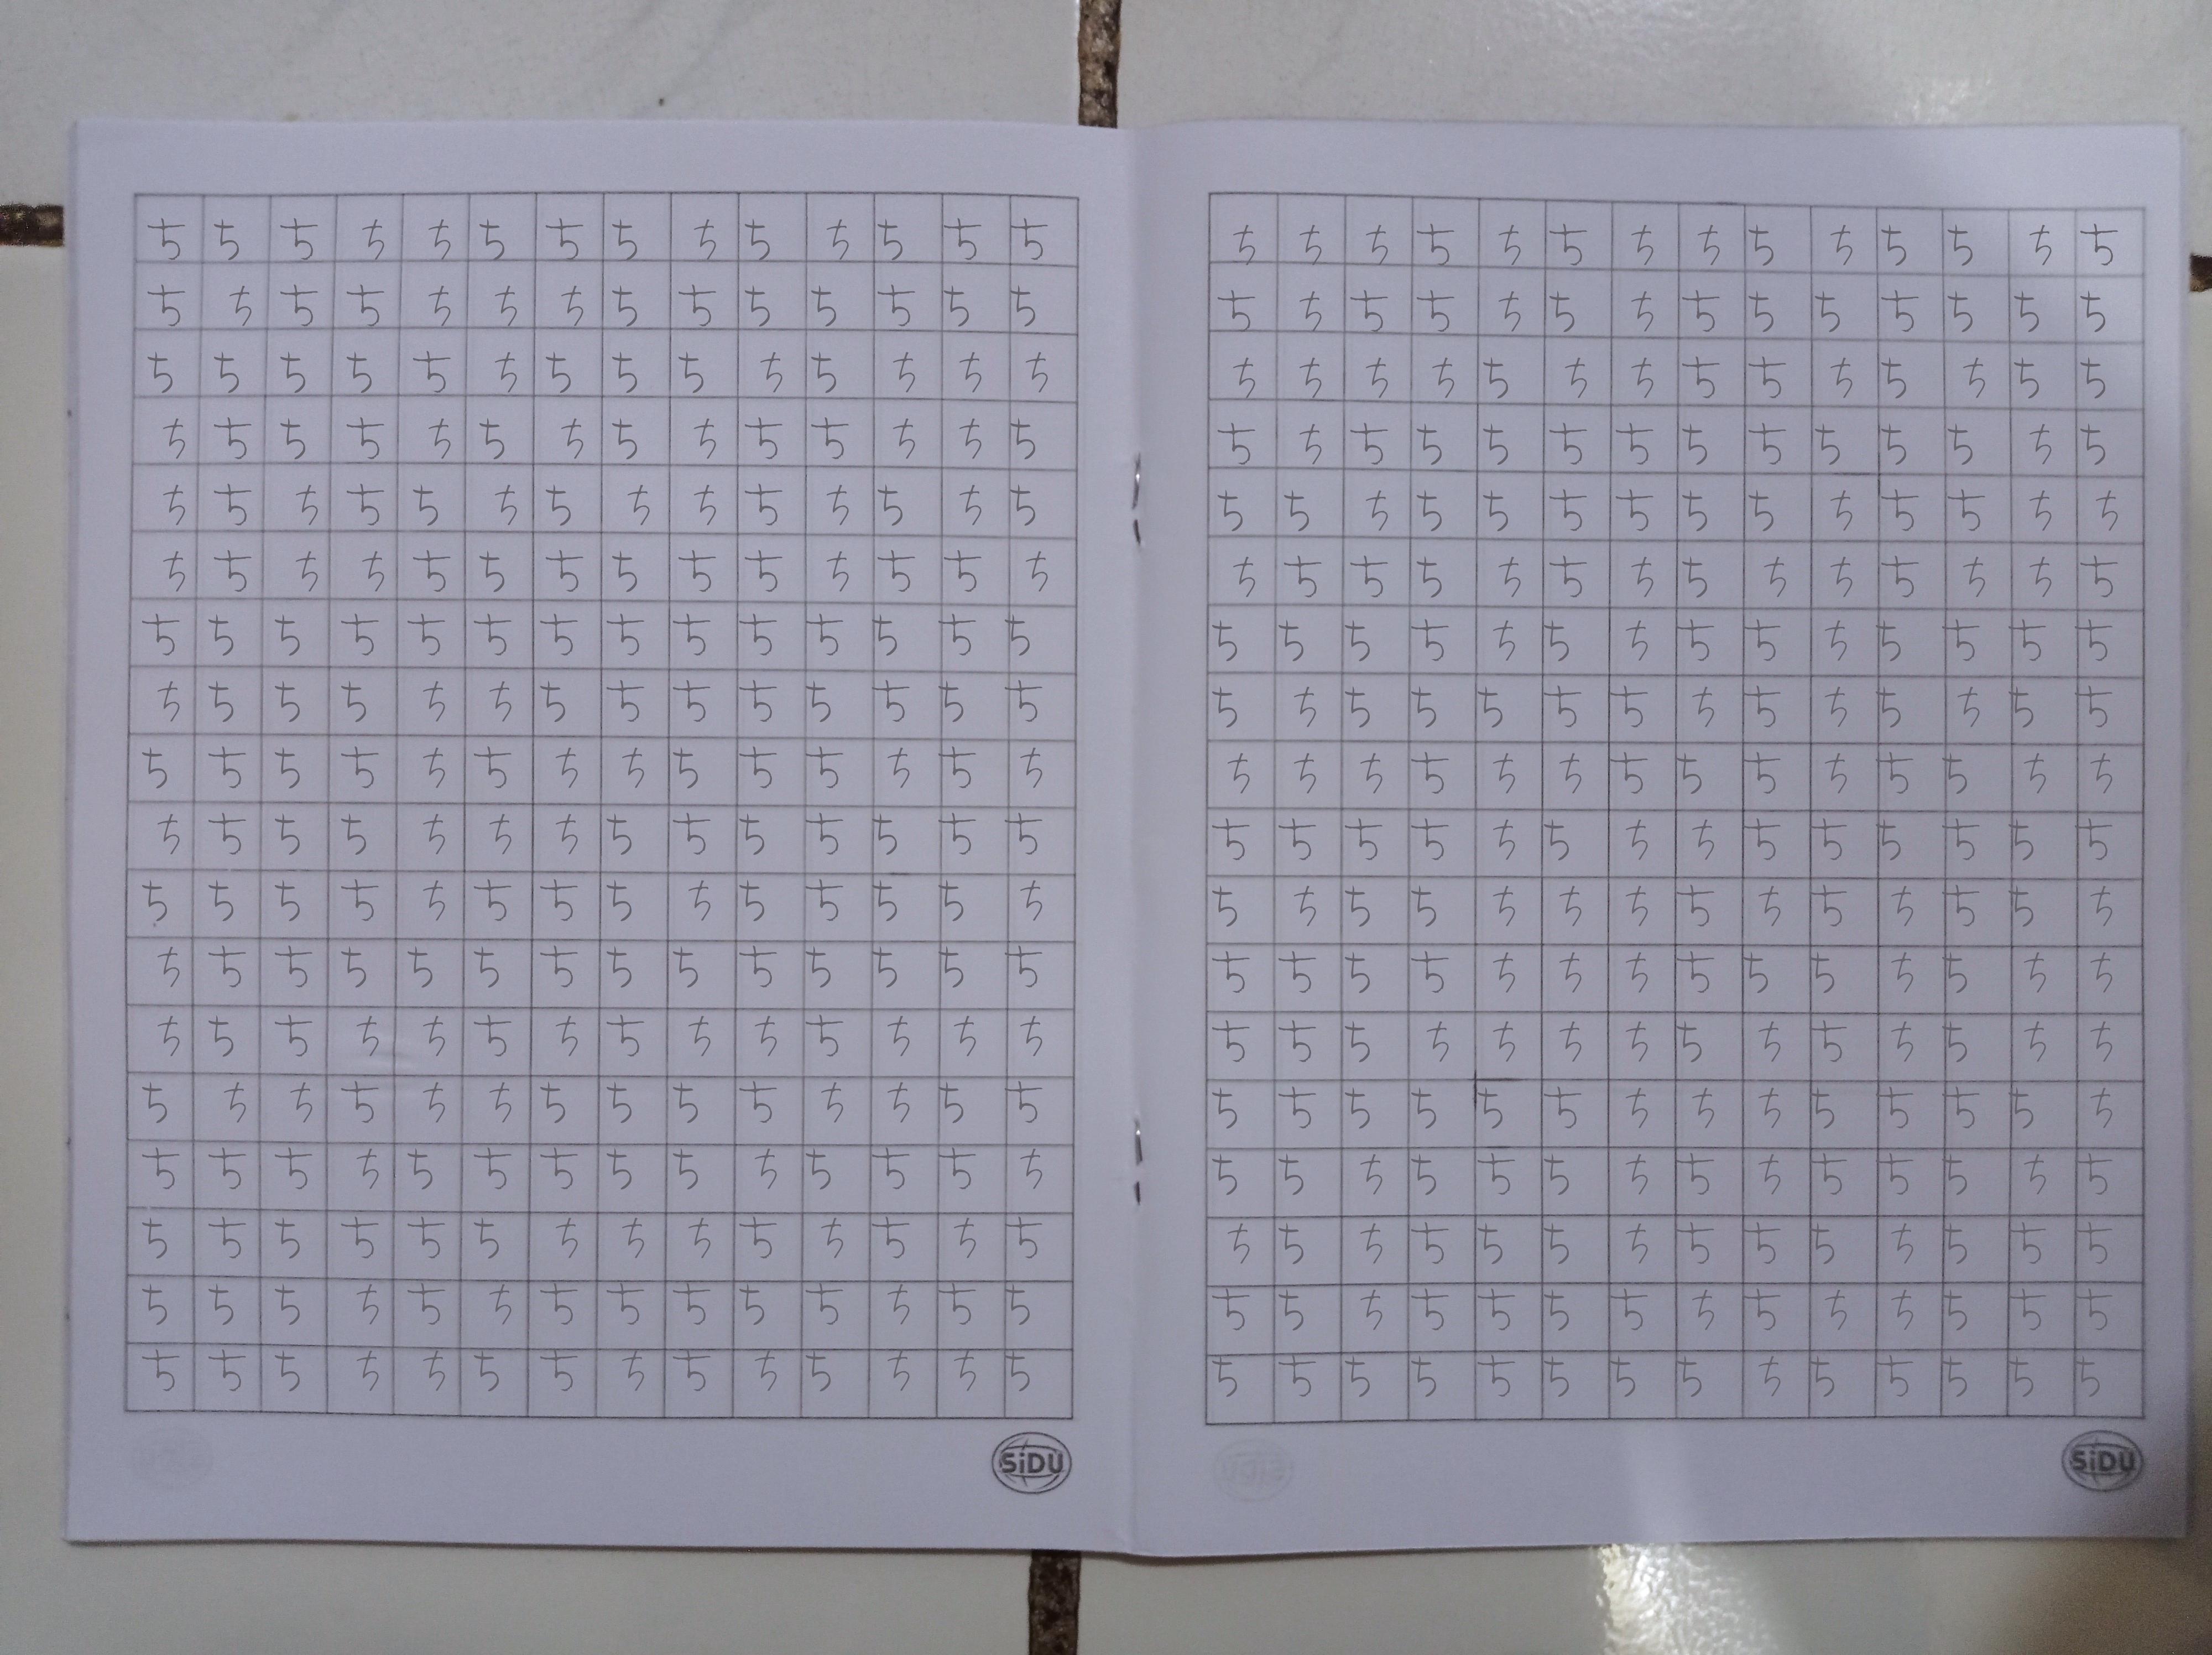 ちちちちちちちちちちちちちち
ちちちちちちちちちちちちちち
ちちちちちちちちちちちちちち
ちちちちちちちちちちちちちち
ちちちちちちちちちちちちちち
ちちちちちちちちちちちちちち
ちちちちちちちちちちちちちち
ちちちちちちちちちちちちちち
ちちちちちちちちちちちちちち
ちちちちちちちちちちちちちち
ちちちちちちちちちちちちちち
ちちちちちちちちちちちちちち
ちちちちちちちちちちちちちち
ちちちちちちちちちちちちちち
ちちちちちちちちちちちちちち
ちちちちちちちちちちちちちち
ちちちちちちちちちちちちちち
ちちちちちちちちちちちちちち
SiDU
ちちちちちちちちちちちちちち
ちちちちちちちちちちちちちち
ちちちちちちちちちちちちちち
ちちちちちちちちちちちちちち
ちちちちちちちちちちちちちち
ちちちちちちちちちちちちちち
ちちちちちちちちちちちちちち
ちちちちちちちちちちちちちち
ちちちちちちちちちちちちちち
ちちちちちちちちちちちちちち
ちちちちちちちちちちちちちち
ちちちちちちちちちちちちちち
ちちちちちちちちちちちちちち
ちちちちちちちちちちちちちち
ちちちちちちちちちちちちちち
ちちちちちちちちちちちちちち
ちちちちちちちちちちちちちち
ちちちちちちちちちちちちちち
SiDU